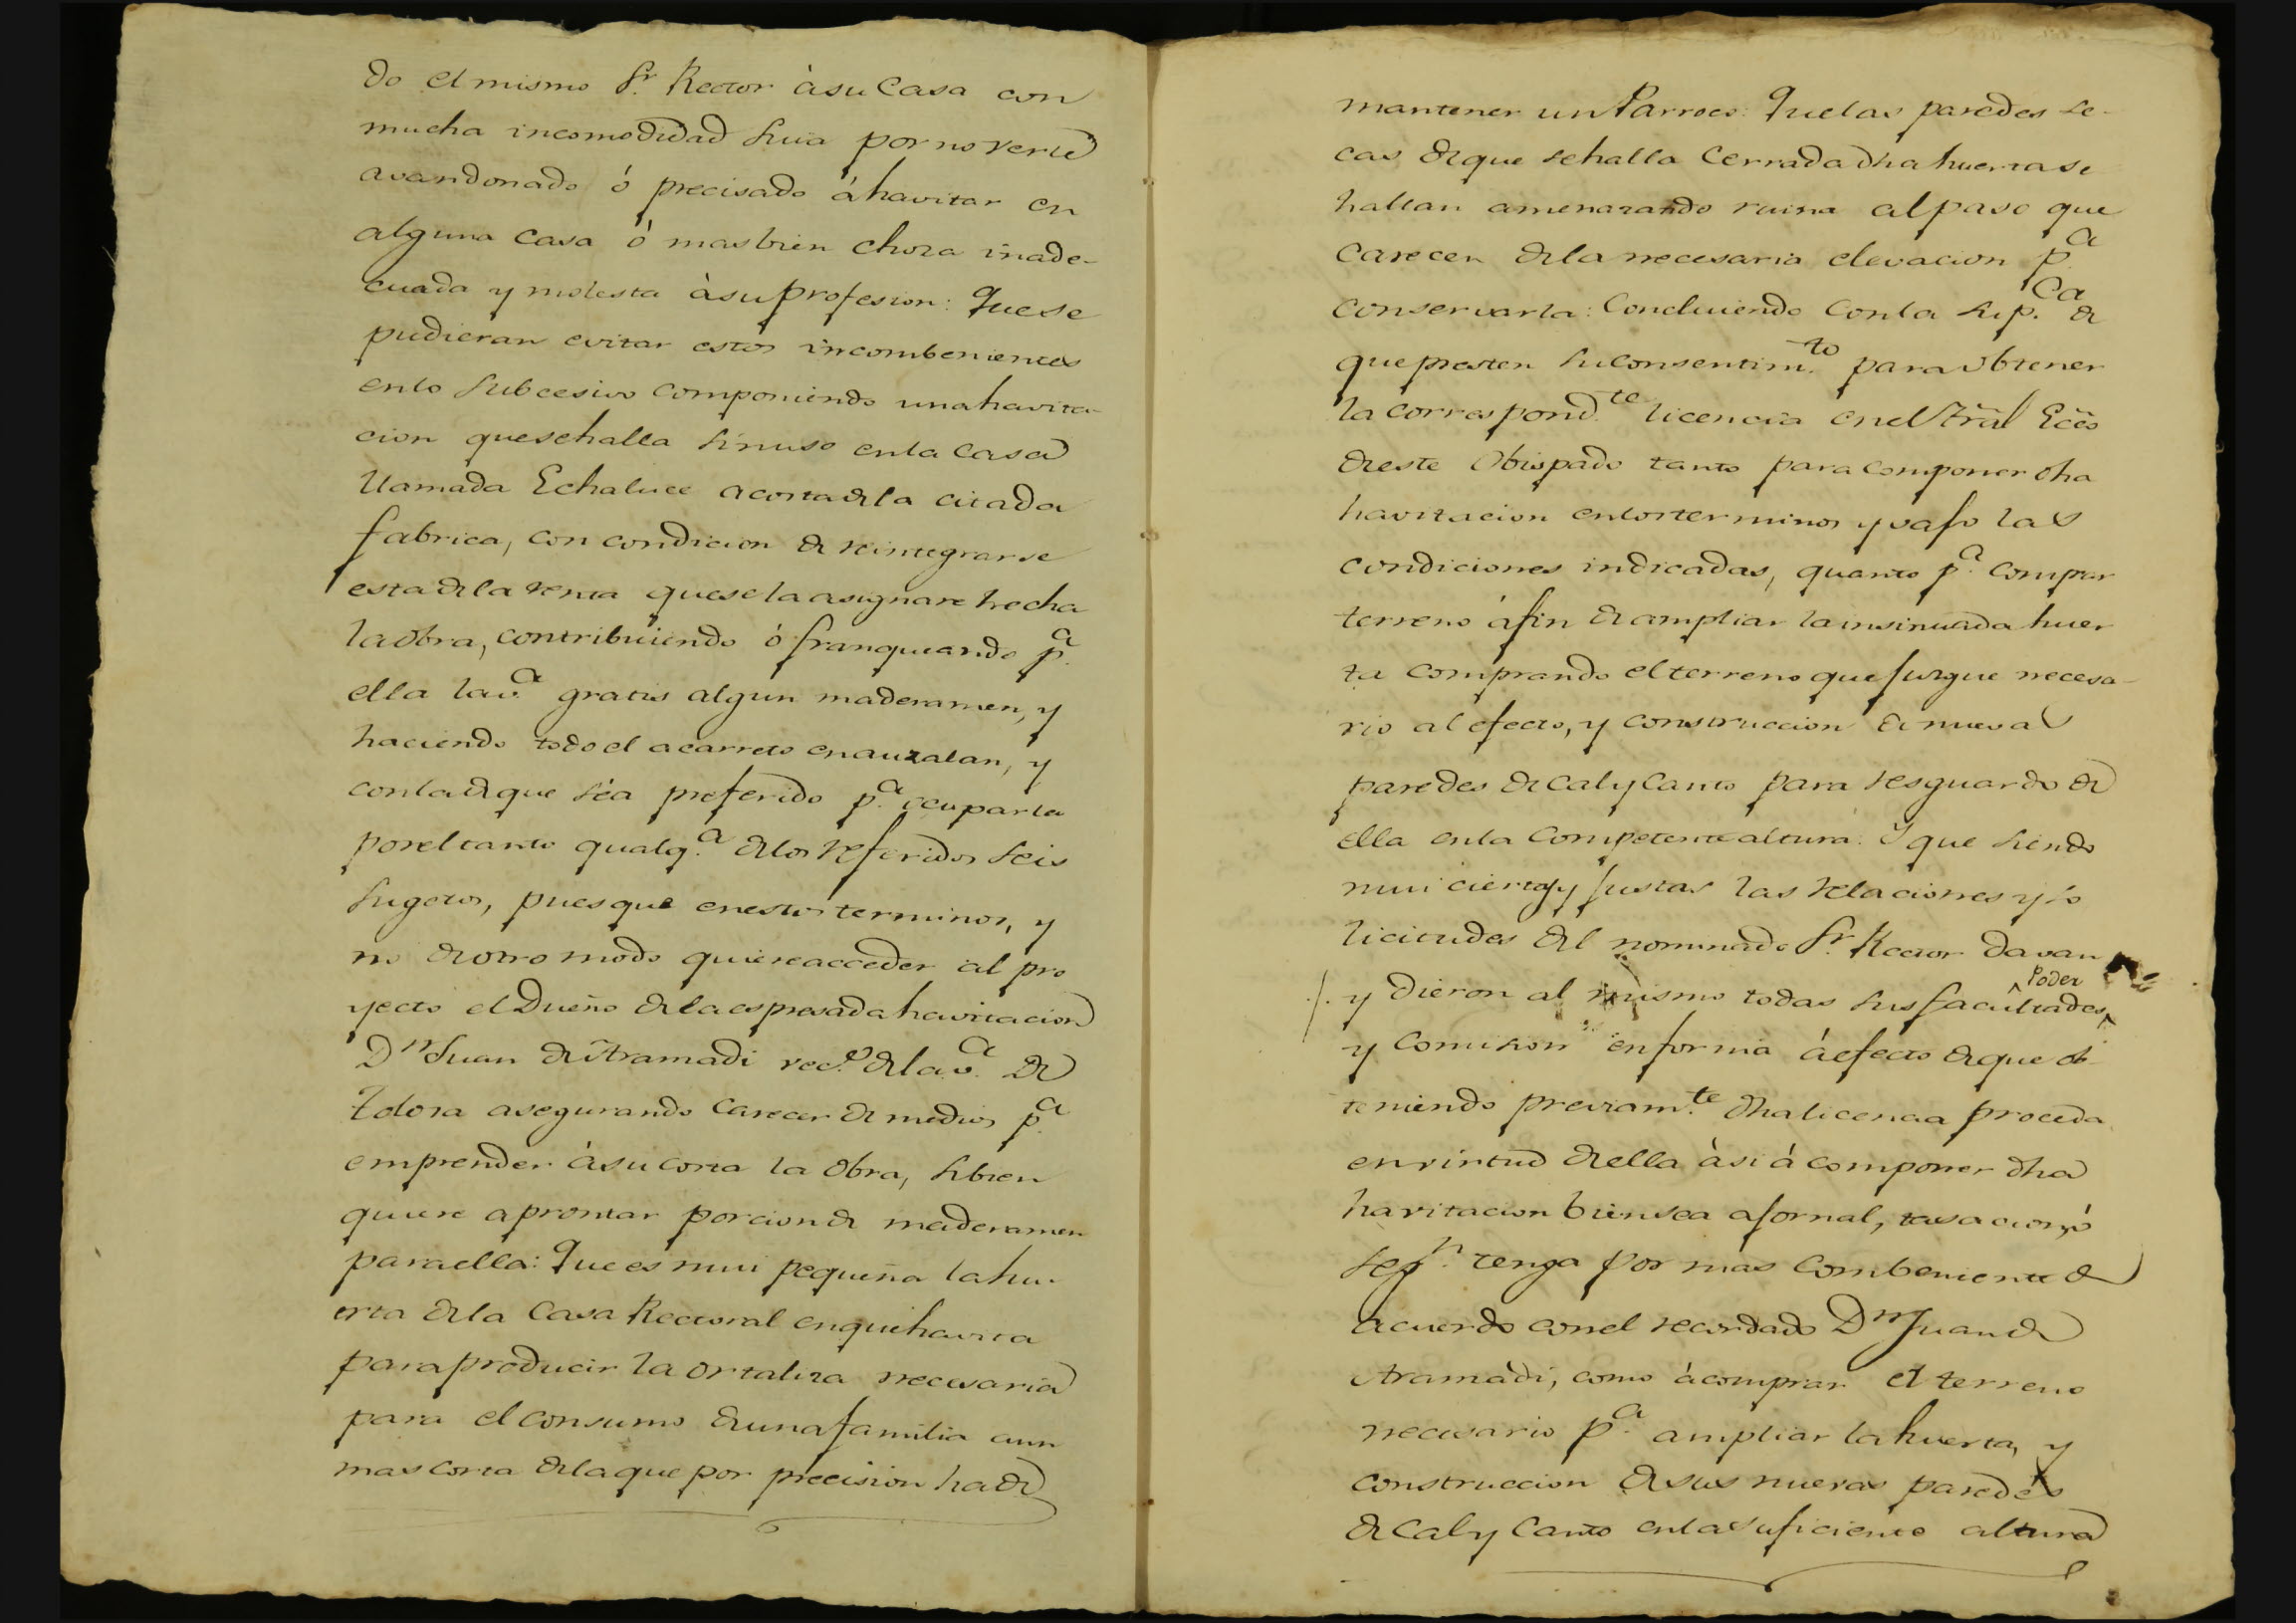 do el mismo Sr. Rector à su Casa con
mucha incomodidad suia por no verle
avandonado ó precisado á havitar en
alguna casa ó mas bien choza inade-
cuada y molesta à su profesion: Que se
pudieran evitar estos incombenientes
en lo subcesivo componiendo una havita-
cion que se halla sin uso en la Casa
llamada Echaluce a costa de la citada
fabrica, con condicion de reintegrarse
esta de la renta que se la asignare hecha
la obra, contribuiendo ó franqueando pa.
ella la va. gratis algun maderamen, y
haciendo todo el acarreto en auzalan, y
con la de que séa preferido pa. ocuparla
por el tanto qualqa. de los referidos seis
sugetos, pues que en estos terminos, y
no de otro modo quiere acceder al pro
yecto el Dueño de la espresada havitacion
Dn Juan de Aramadi veco. de la va. de
Tolosa asegurando carecer de medios pa.
emprender à su costa la obra, si bien
quiere aprontar porcion de maderamen
para ella: Que es mui pequeña la hu-
erta de la Casa Rectoral en que havita
para producir la ortaliza necesaria
para el consumo de una familia aun
mas corta de la que por precision ha de
mantener un Parroco: Que las paredes se-
cas de que se halla Cerrada dha huerta se
hallan amenazando ruina al paso que
carecen de la necesaria elevacion pa.
conservarla: Concluiendo con la supca. de
que presten su consentimto. para obtener
la correspondte. licencia en el Tral Eccō
de este Obispado tanto para componer dha
havitacion en los terminos y vajo las
condiciones indicadas, quanto pa. comprar
terreno á fin de ampliar la insinuada huer
ta comprando el terreno que juzgue necesa-
rio al efecto, y construccion de nuevas
paredes de cal y canto para resguardo de
ella en la competente altura: Y que siendo
mui ciertas y justas las relaciones y so
licitudes del nominado Sr. Rector davan
./. y dieron al mismo todas sus facultades, Poder
y Comision en forma á efecto de que ob
teniendo previamte. dha licencia proceda
en virtud de ella àsi á componer dha
havitacion bien sea a jornal, tasacion, ó
segn. tenga por mas combeniente de
acuerdo con el recordado Dn Juan de
Aramadi, como á comprar el terreno
necesario pa. ampliar la huerta, y
construccion de sus nuevas paredes
de Cal y Canto en la suficiente altura